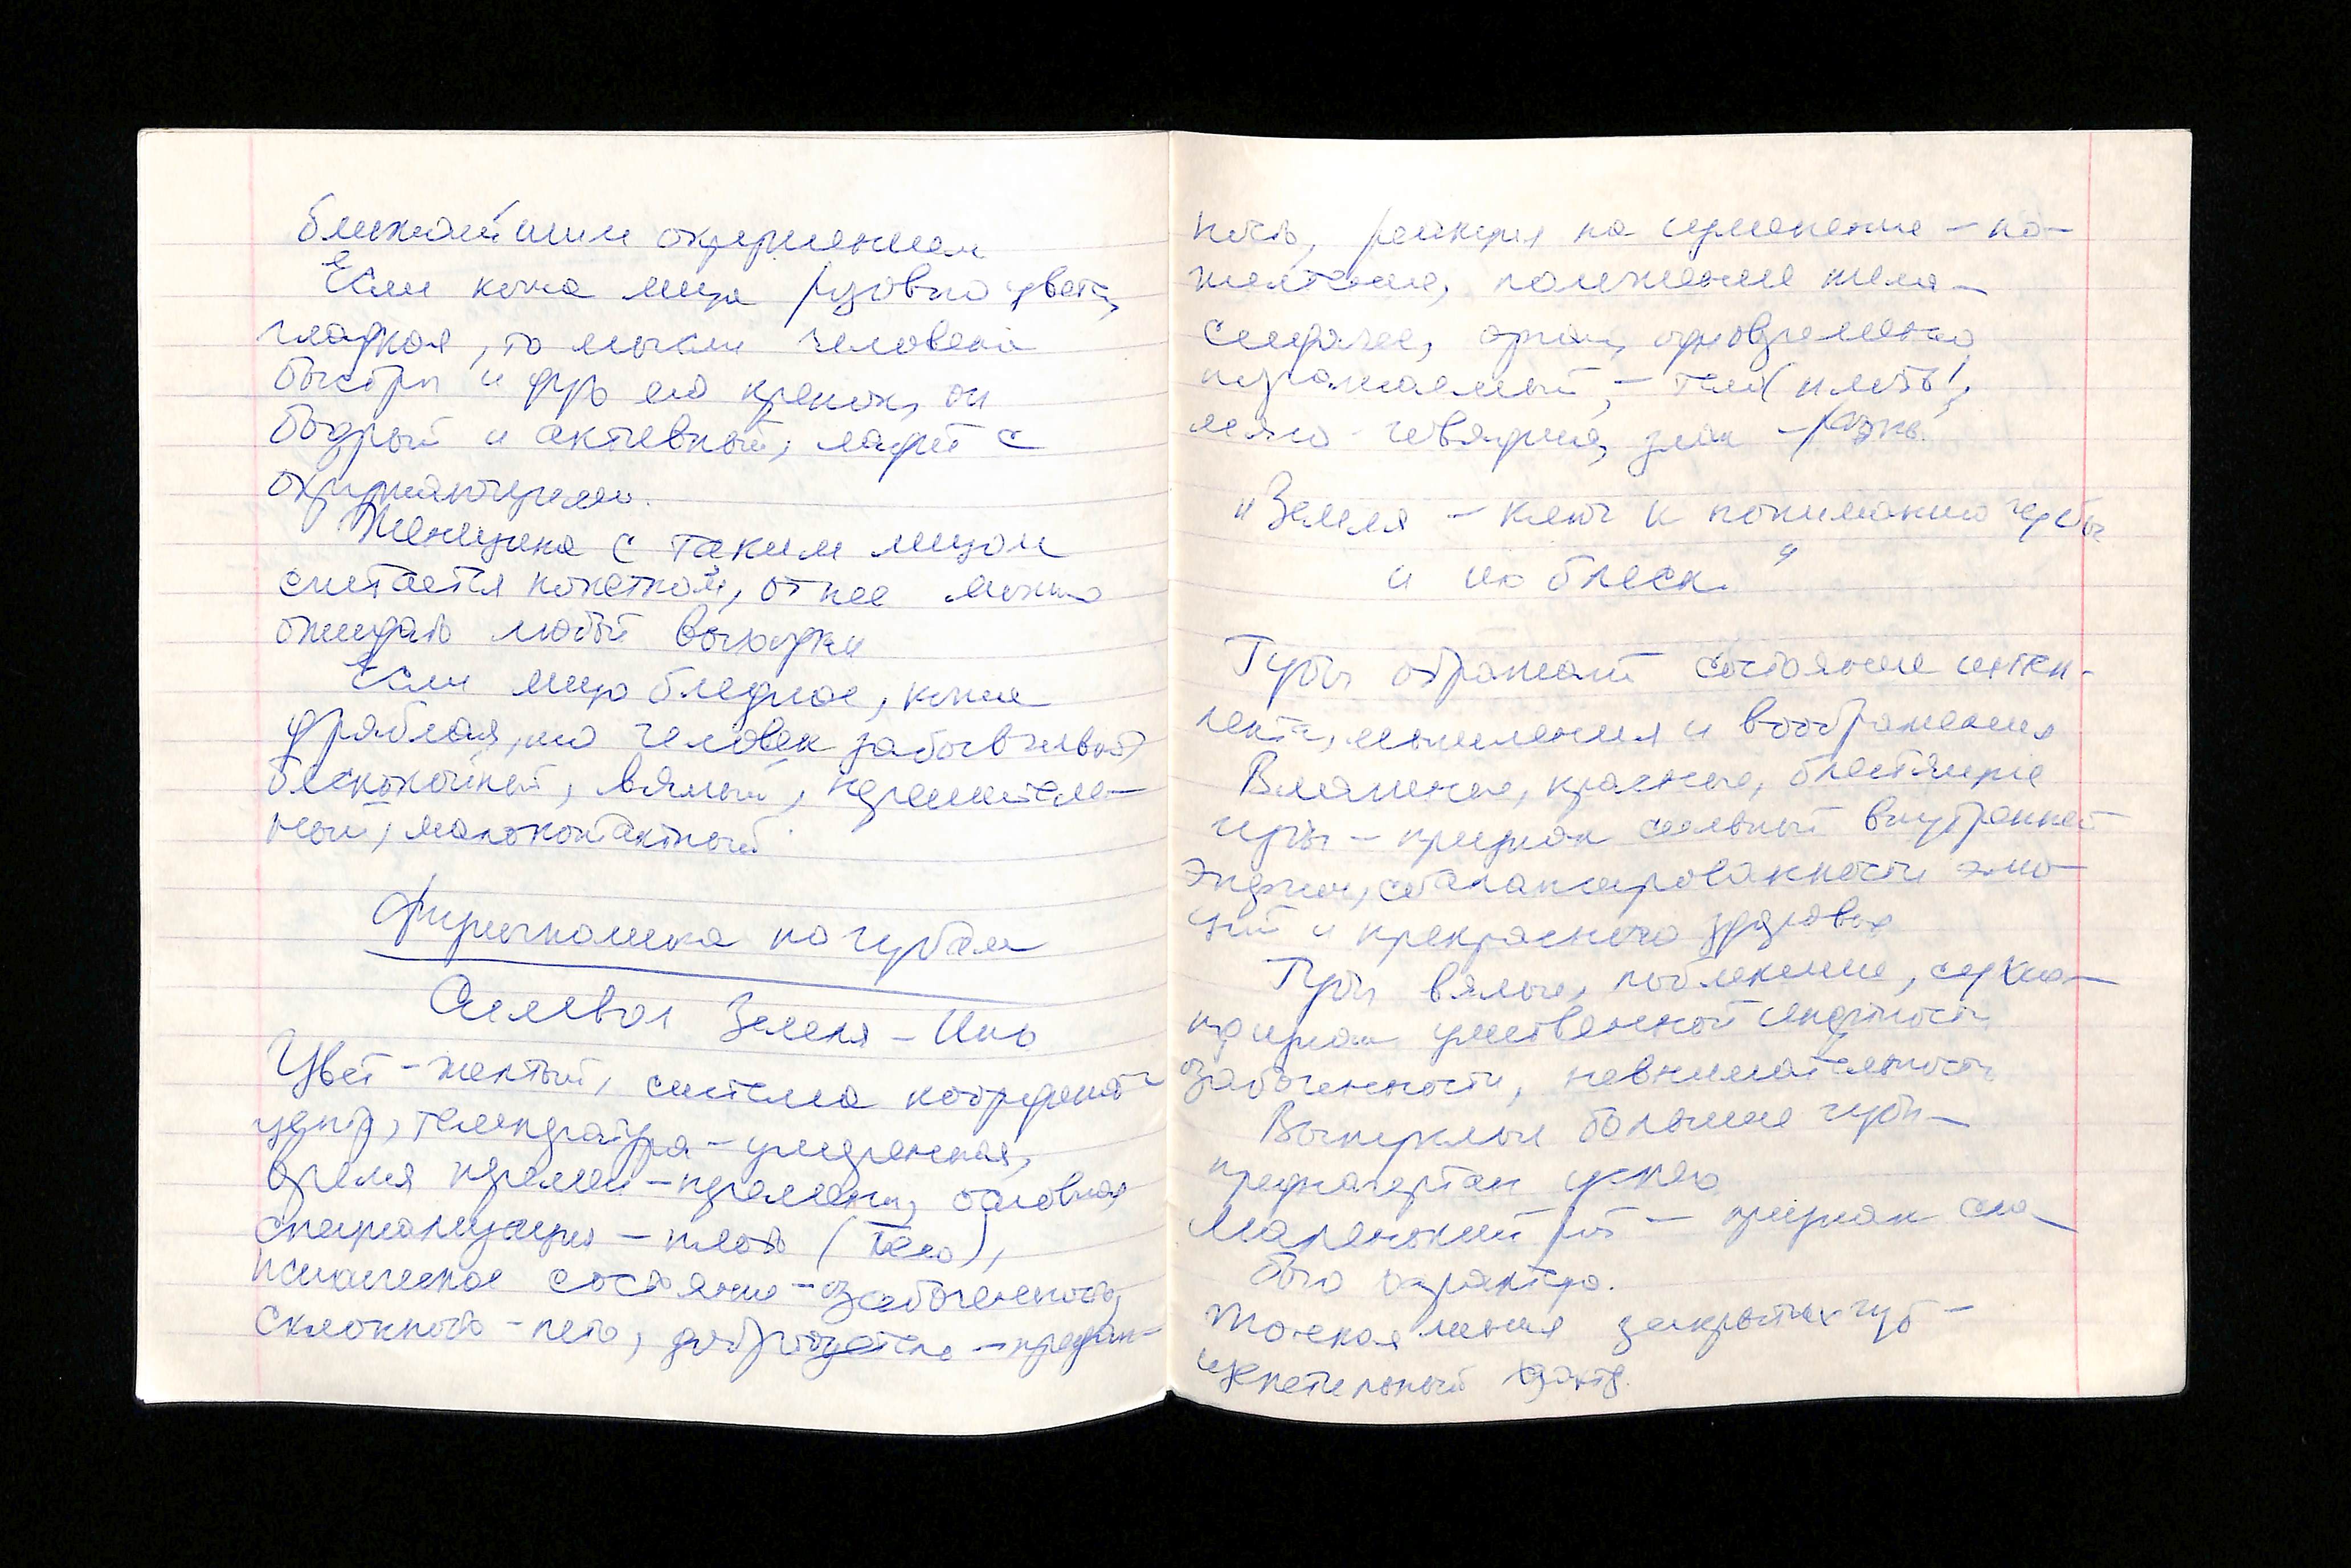 ближайшим окружением
Если кожа лица розового цвета,
гладкая, то мысли человека
быстры и дух его крепок, он
бодрый и активный, ладит с
окружающими.
Женщина с таким лицом
считается кокеткой, от нее можно
ожидать любой выходки
Если лицо бледное, кожа
дряблая, то человек забывчивый,
беспокойный, вялый, нерешитель-
ный, малоконтактный.
Физиогномика по губам
Символ Земля - Инь
Цвет - желтый, система координат
центр, температура - умеренная,
время перемен - перемены, основная
специализация - плоть (тело),
психическое состояние - озабоченность,
склонность - петь, добродетель - предан-
ность, реакция на изменение - по-
желтение, положение тела -
сидячее, орган, одновременно
поражаемый, - тело (плоть),
мясо - говядина, злак - рожь.
"Земля - ключ к пониманию губ
и их блеск"
Губы отражают состояние интел-
лекта, мышления и воображения
Влажные, красные, блестящие
губы - признак сильной внутренней
энергии, сбалансированности эмо-
ций и прекрасного здоровья
Губы вялые, поблекшие, сухие -
признак умственной инертности,
озабоченности, невнимательности
Выпуклые большие губы -
предначертан успех
Маленький рот - признак сла-
бого характера.
Тонкая линия закрытых губ -
характер.